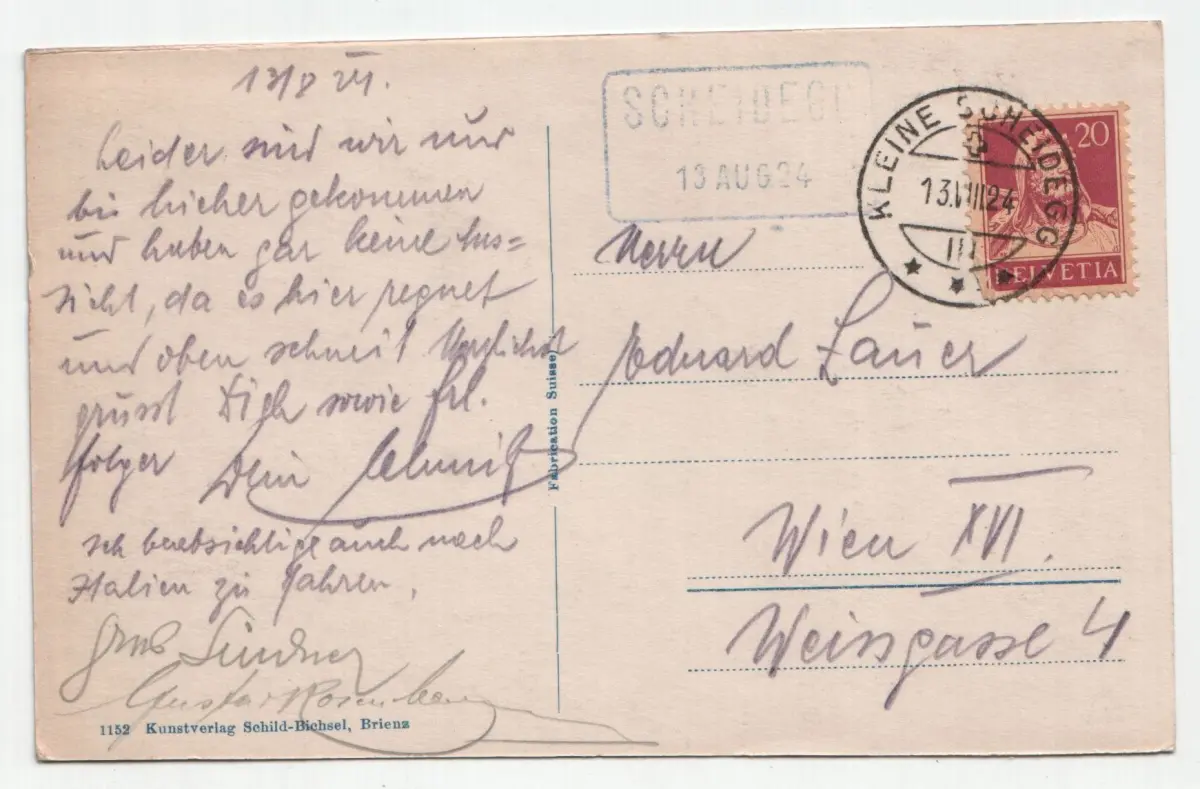 13/8 24.
Leider sind wir nur
bis hieher gekommen
und haben gar keine Aus=
sicht, da es hier regnet
und oben schneit Herzlichst
grüsst Dich sowie Frl.
Holzer Dein
Ich beabsichtige auch nach
Italien zu fahren.
Gruß Lindner
Gustav Rosenberg
1152 Kunstverlag Schild-Bichsel, Brienz
Fabrication Suisse
SCHEIDEGG
13 AUG 24
KLEINE SCHEIDEGG
13.VIII.24
III
20
HELVETIA
Herrn
Eduard Lauer
Wien XVI.
Weissgasse 4